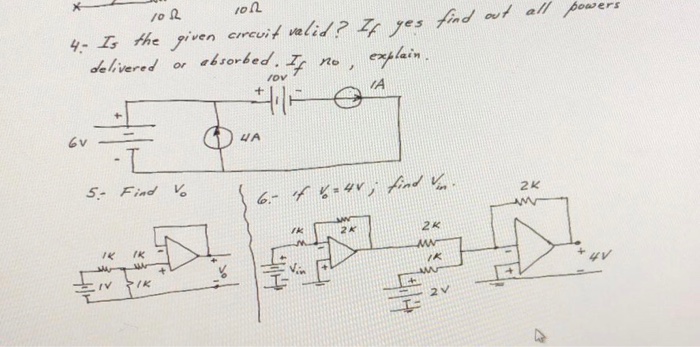 10Ω 10Ω
4.- Is the given circuit valid? If yes find out all powers
delivered or absorbed. If no, explain.
10V
+ -
1A
+
6V
-
4A
5.- Find Vo
6.- if Vo = 4V; find Vin.
2K
1K
2K
2K
1K 1K
-
+
+
Vo
-
1V
1K
Vin
-
+
1K
+
2V
-
-
+
+
4V
-